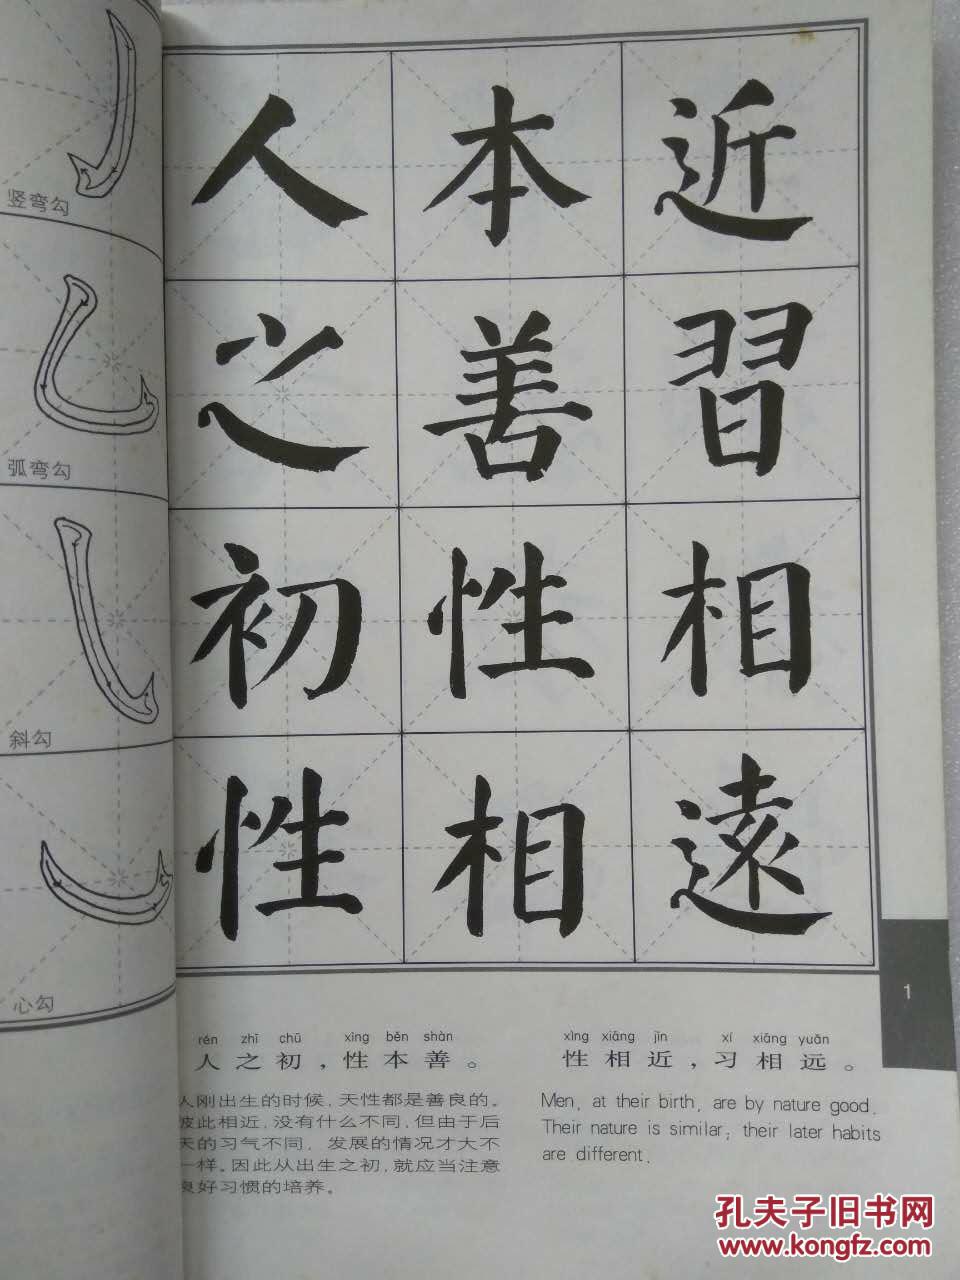 竖弯勾
弧弯勾
斜勾
心勾
人之初性
本善性相
近習相遠
1
rén zhī chū xìng běn shàn
人之初，性本善。
xìng xiāng jìn xí xiāng yuǎn
性相近，习相远。
人刚出生的时候，天性都是善良的。
彼此相近，没有什么不同，但由于后
天的习气不同，发展的情况才大不
一样。因此从出生之初，就应当注意
良好习惯的培养。
Men, at their birth, are by nature good.
Their nature is similar; their later habits
are different.
孔夫子旧书网
www.kongfz.com